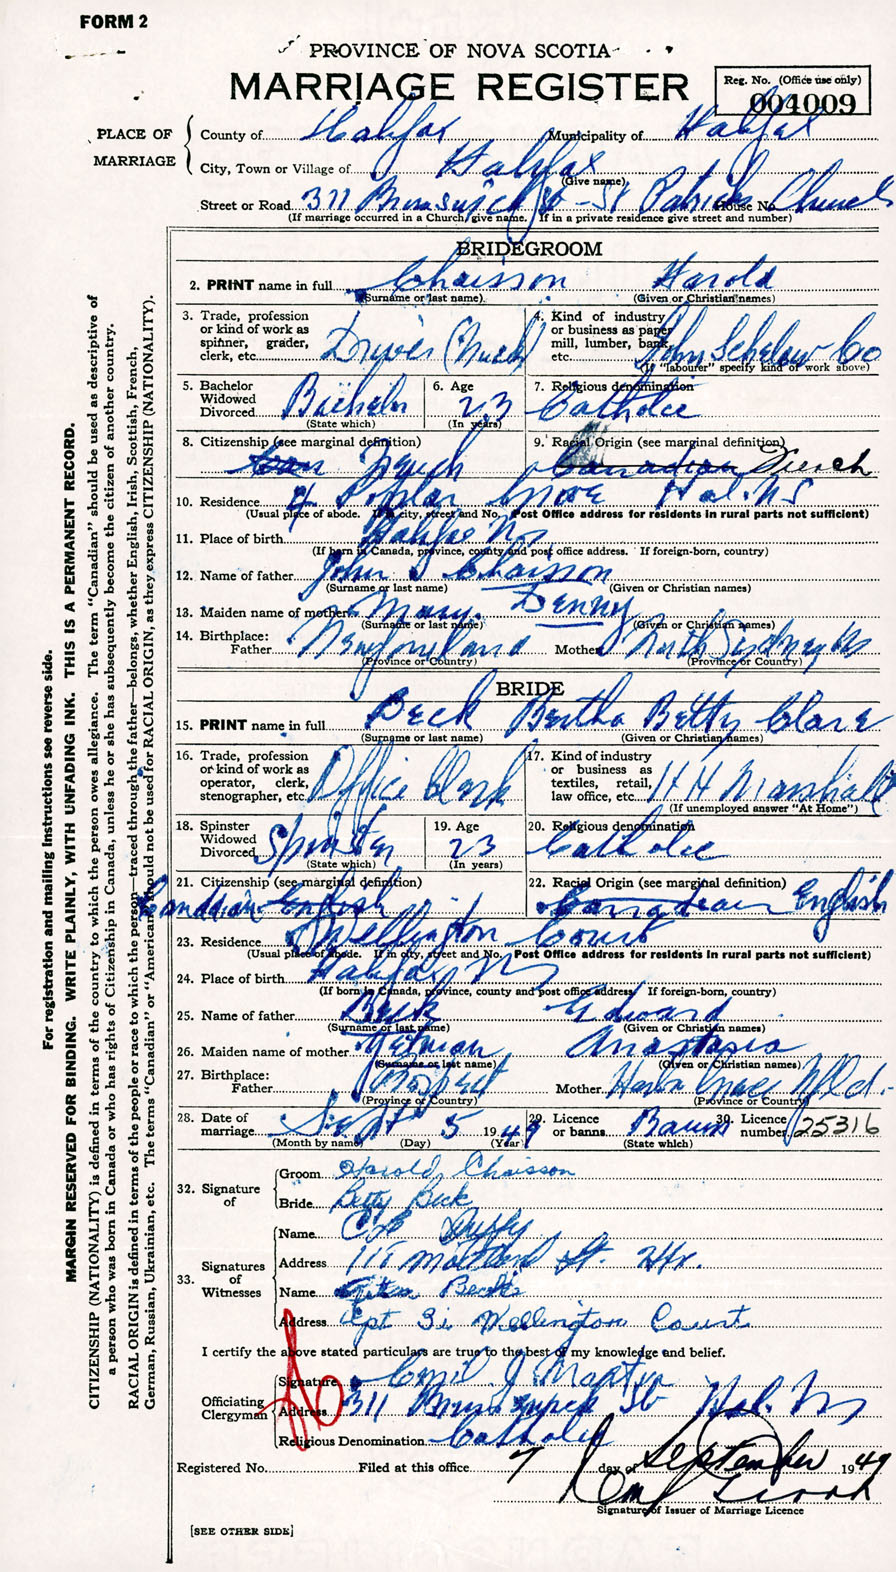 FORM 2
PROVINCE OF NOVA SCOTIA
MARRIAGE REGISTER
Reg. No. (Office use only)
004009
PLACE OF MARRIAGE
County of Halifax Municipality of Halifax
City, Town or Village of Halifax
(Give name)
Street or Road 311 Brunswick St - St Patricks Church House No.
(If marriage occurred in a Church, give name. If in a private residence give street and number)
BRIDEGROOM
2. PRINT name in full Chaisson Harold
(Surname or last name) (Given or Christian names)
3. Trade, profession or kind of work as spinner, grader, clerk, etc. Driver (Truck)
4. Kind of industry or business as paper mill, lumber, bank, etc. John Co
(If "labourer" specify kind of work above)
5. Bachelor Widowed Divorced Bachelor
(State which)
6. Age 23
(In years)
7. Religious denomination Catholic
8. Citizenship (see marginal definition)
French
9. Racial Origin (see marginal definition)
Canadian French
10. Residence 4 Poplar Grove Hal. NS
(Usual place of abode. If in city, street and No. Post Office address for residents in rural parts not sufficient)
11. Place of birth Halifax NS
(If born in Canada, province, county and post office address. If foreign-born, country)
12. Name of father John Chaisson
(Surname or last name) (Given or Christian names)
13. Maiden name of mother Mary Denny
(Surname or last name) (Given or Christian names)
14. Birthplace: Father Newfoundland Mother North Sydney NS
(Province or Country) (Province or Country)
BRIDE
15. PRINT name in full Beck Bertha Betty Clare
(Surname or last name) (Given or Christian names)
16. Trade, profession or kind of work as operator, clerk, stenographer, etc. Office Clerk
17. Kind of industry or business as textiles, retail, law office, etc. H H Marshall
(If unemployed answer "At Home")
18. Spinster Widowed Divorced Spinster
(State which)
19. Age 23
(In years)
20. Religious denomination Catholic
21. Citizenship (see marginal definition)
Canadian English
22. Racial Origin (see marginal definition)
Canadian English
23. Residence Wellington Court
(Usual place of abode. If in city, street and No. Post Office address for residents in rural parts not sufficient)
24. Place of birth Halifax NS
(If born in Canada, province, county and post office address. If foreign-born, country)
25. Name of father Beck Edward
(Surname or last name) (Given or Christian names)
26. Maiden name of mother Anastasia
(Surname or last name) (Given or Christian names)
27. Birthplace: Father Prospect Mother Harbor Grace Nfld.
(Province or Country) (Province or Country)
28. Date of marriage Sept 5 1949
(Month by name) (Day) (Year)
29. Licence or banns Banns
(State which)
30. Licence number 25316
32. Signature of
Groom Harold Chaisson
Bride Betty Beck
33. Signatures of Witnesses
Name Duffy
Address Maitland St. Hfx.
Name
Address Apt 3 Wellington Court
I certify the above stated particulars are true to the best of my knowledge and belief.
Officiating Clergyman
Signature J Martin
Address 311 Brunswick St Hal. NS
Religious Denomination Catholic
Registered No. Filed at this office 7 day of September 1949
Signature of Issuer of Marriage Licence
[SEE OTHER SIDE]
For registration and mailing instructions see reverse side.
MARGIN RESERVED FOR BINDING. WRITE PLAINLY, WITH UNFADING INK. THIS IS A PERMANENT RECORD.
CITIZENSHIP (NATIONALITY) is defined in terms of the country to which the person owes allegiance. The term "Canadian" should be used as descriptive of
a person who was born in Canada or who has rights of Citizenship in Canada, unless he or she has subsequently become the citizen of another country.
RACIAL ORIGIN is defined in terms of the people or race to which the person—traced through the father—belongs, whether English, Irish, Scottish, French,
German, Russian, Ukrainian, etc. The terms "Canadian" or "American" should not be used for RACIAL ORIGIN, as they express CITIZENSHIP (NATIONALITY).